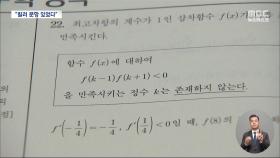 "킬러 문항 있었다"
MBC
22. 최고차항의 계수가 1인 삼차함수 f(x)가
만족시킨다.
함수 f(x)에 대하여
f(k-1)f(k+1)<0
을 만족시키는 정수 k는 존재하지 않는다.
f'(-1/4)=-1/4, f'(1/4)<0일 때, f(8)의